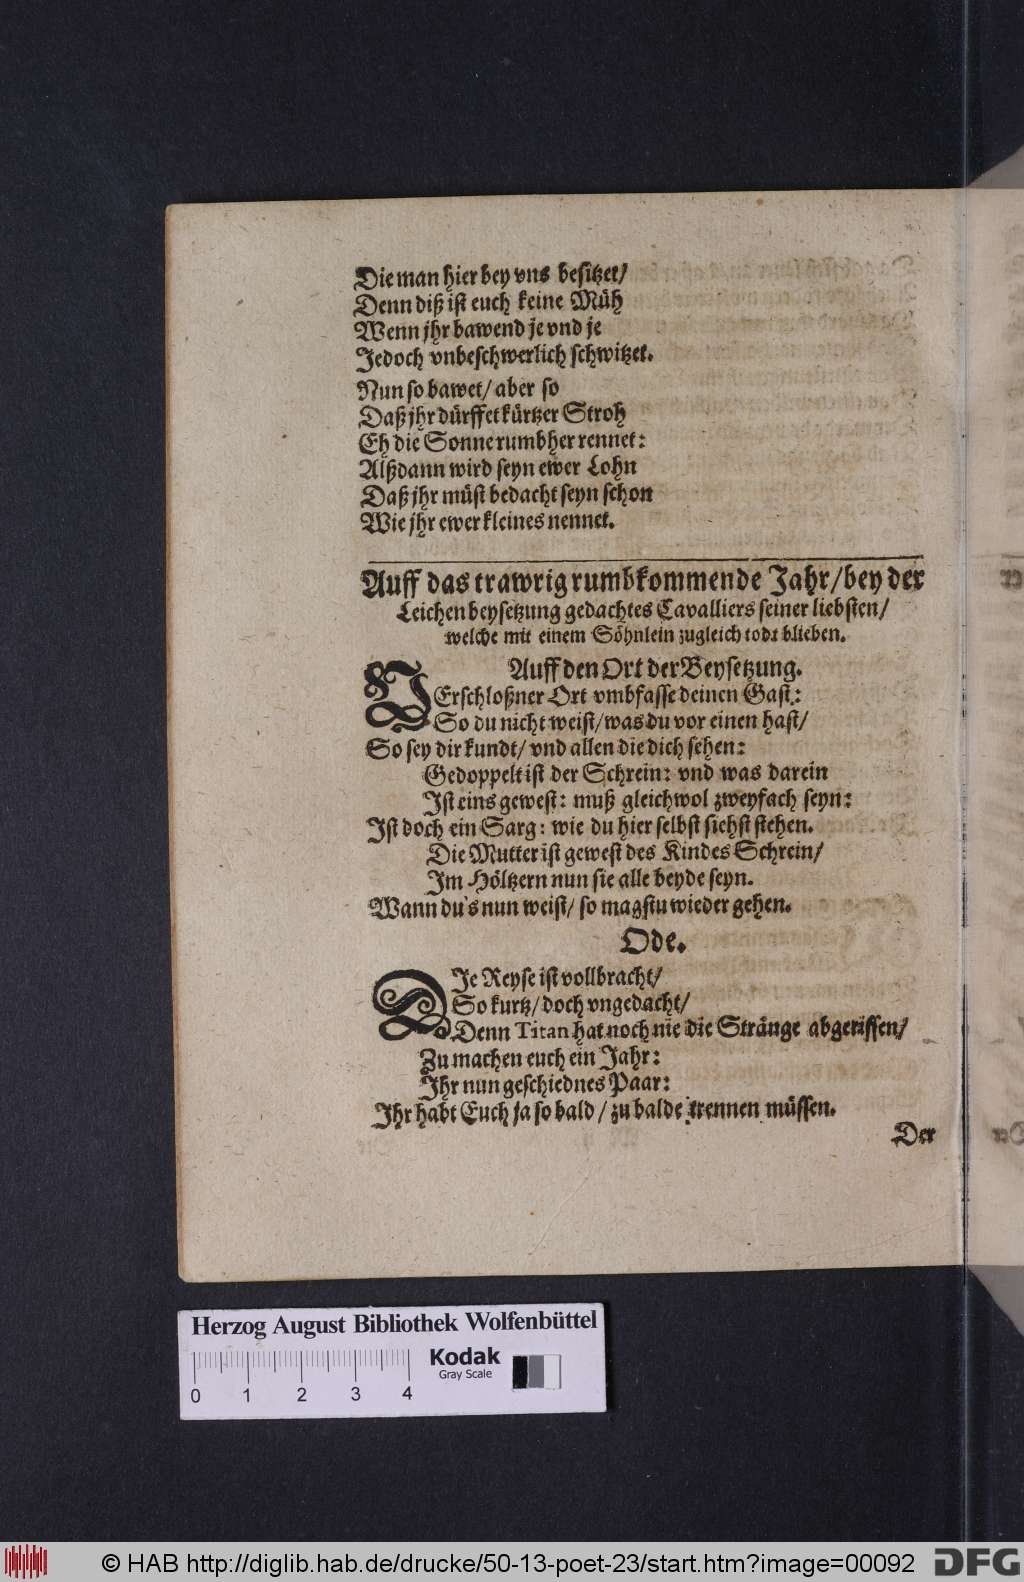 Die man hier bey vns besitzet/
Denn diß ist euch keine Müh
Wenn jhr bawend je vnd je
Jedoch vnbeschwerlich schwitzet.
Nun so bawet/ aber so
Daß jhr dürffet kürtzer Stroh
Eh die Sonne rumbher rennet:
Alßdann wird seyn ewer Lohn
Daß jhr müst bedacht seyn schon
Wie jhr ewer kleines nennet.
Auff das trawrig rumbkommende Jahr/ bey der
Leichen beysetzung gedachtes Cavalliers seiner liebsten/
welche mit einem Söhnlein zugleich todt blieben.
Auff den Ort der Beysetzung.
VErschloßner Ort vmbfasse deinen Gast:
So du nicht weist/ was du vor einen hast/
So sey dir kundt/ vnd allen die dich sehen:
Gedoppelt ist der Schrein: vnd was darein
Ist eins gewest: muß gleichwol zweyfach seyn:
Ist doch ein Sarg: wie du hier selbst siehst stehen.
Die Mutter ist gewest des Kindes Schrein/
Im Höltzern nun sie alle beyde seyn.
Wann du's nun weist/ so magstu wieder gehen.
Ode.
DIe Reyse ist vollbracht/
So kurtz/ doch vngedacht/
Denn Titan hat noch nie die Stränge abgerissen/
Zu machen euch ein Jahr:
Ihr nun geschiednes Paar:
Ihr habt Euch ja so bald/ zu balde trennen müssen.
Der
Herzog August Bibliothek Wolfenbüttel
Kodak
Gray Scale
0 1 2 3 4
© HAB http://diglib.hab.de/drucke/50-13-poet-23/start.htm?image=00092
DFG